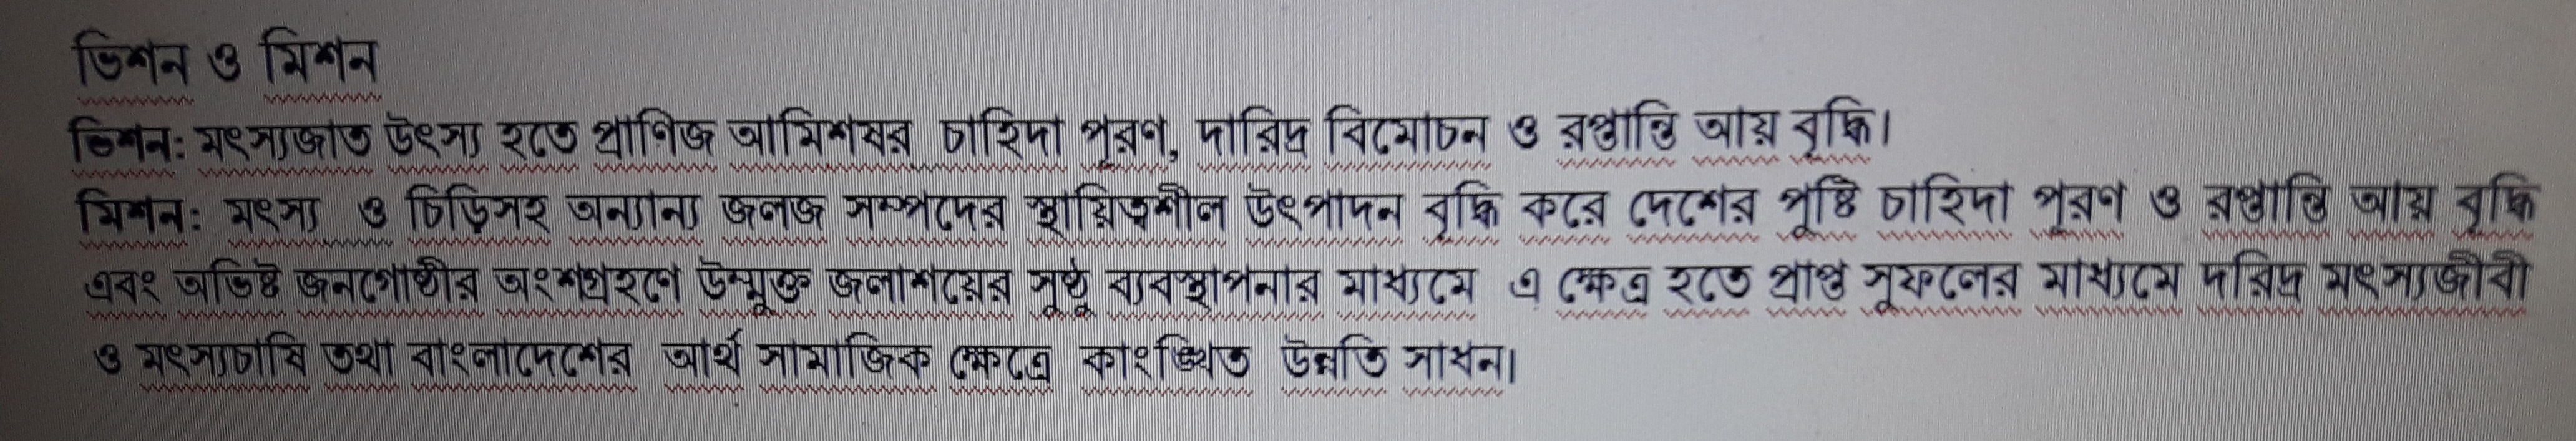 ভিশন ও মিশন
ভিশন: মৎস্যজাত উৎস্য হতে প্রাণিজ আমিশষর চাহিদা পূরণ, দারিদ্র বিমোচন ও রপ্তান্তি আয় বৃদ্ধি।
মিশন: মৎস্য ও চিড়িসহ অন্যান্য জলজ সম্পদের স্থায়িত্বশীল উৎপাদন বৃদ্ধি করে দেশের পুষ্টি চাহিদা পূরণ ও রপ্তান্তি আয় বৃদ্ধি
এবং অভিষ্ট জনগোষ্ঠীর অংশগ্রহণে উন্মুক্ত জলাশয়ের সুষ্ঠু ব্যবস্থাপনার মাধ্যমে এ ক্ষেত্র হতে প্রাপ্ত সুফলের মাধ্যমে দরিদ্র মৎস্যজীবী
ও মৎস্যচাষি তথা বাংলাদেশের আর্থ সামাজিক ক্ষেত্রে কাংঙ্খিত উন্নতি সাধন।